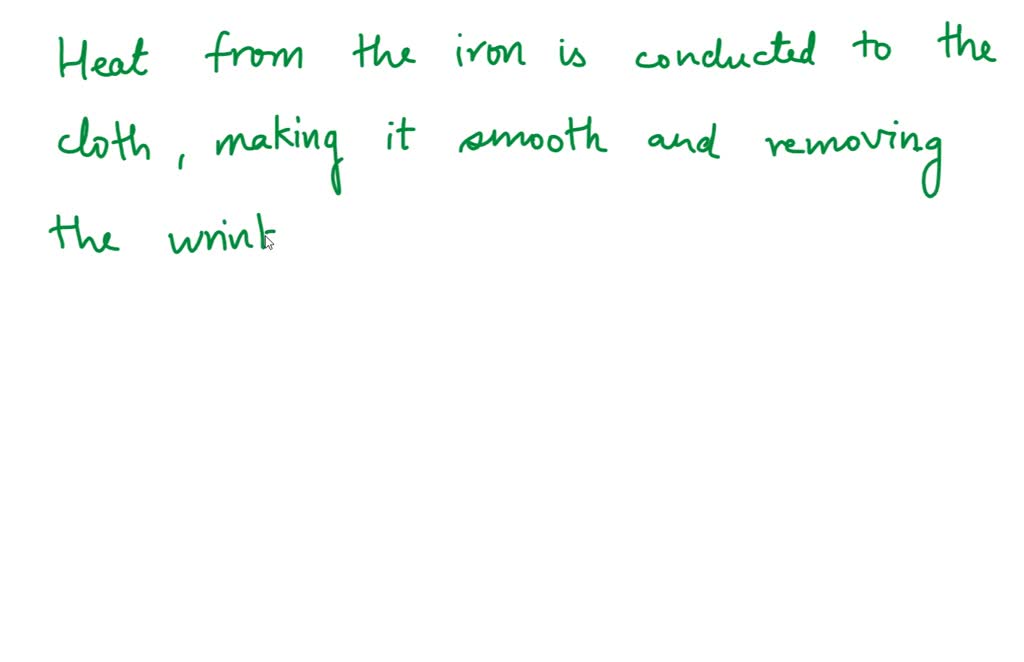 Heat from the iron is conducted to the
cloth, making it smooth and removing
the wrink